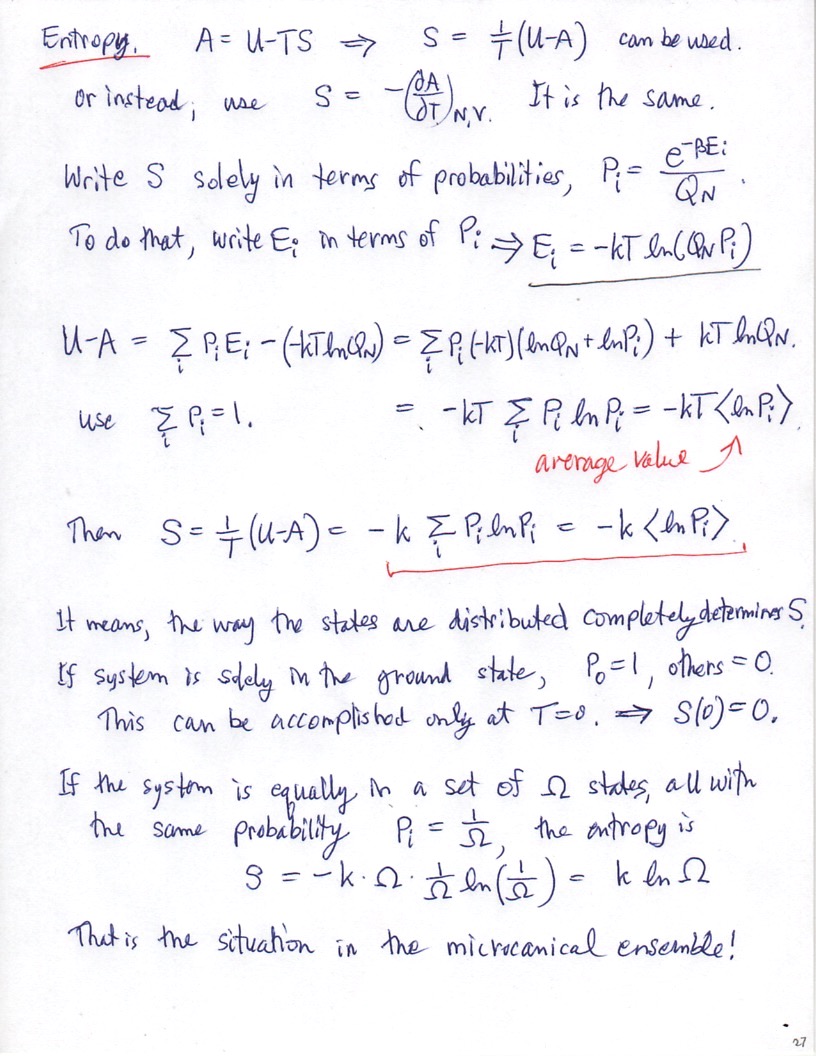 Entropy. A = U-TS ⇒ S = 1/T (U-A) can be used.
or instead, use S = -(∂A/∂T)N,V. It is the same.
Write S solely in terms of probabilities, Pi = e^-βEi / QN.
To do that, write Ei in terms of Pi ⇒ Ei = -kT ln(QN Pi)
U-A = Σi Pi Ei - (-kT ln QN) = Σi Pi (-kT)(ln QN + ln Pi) + kT ln QN.
use Σi Pi = 1. = -kT Σi Pi ln Pi = -kT ⟨ln Pi⟩
average value ↗
Then S = 1/T (U-A) = -k Σi Pi ln Pi = -k ⟨ln Pi⟩
It means, the way the states are distributed completely determines S.
If system is solely in the ground state, P0 = 1, others = 0.
This can be accomplished only at T=0. ⇒ S(0) = 0.
If the system is equally in a set of Ω states, all with
the same probability Pi = 1/Ω, the entropy is
S = -k · Ω · 1/Ω ln(1/Ω) = k ln Ω
That is the situation in the microcanical ensemble!
27